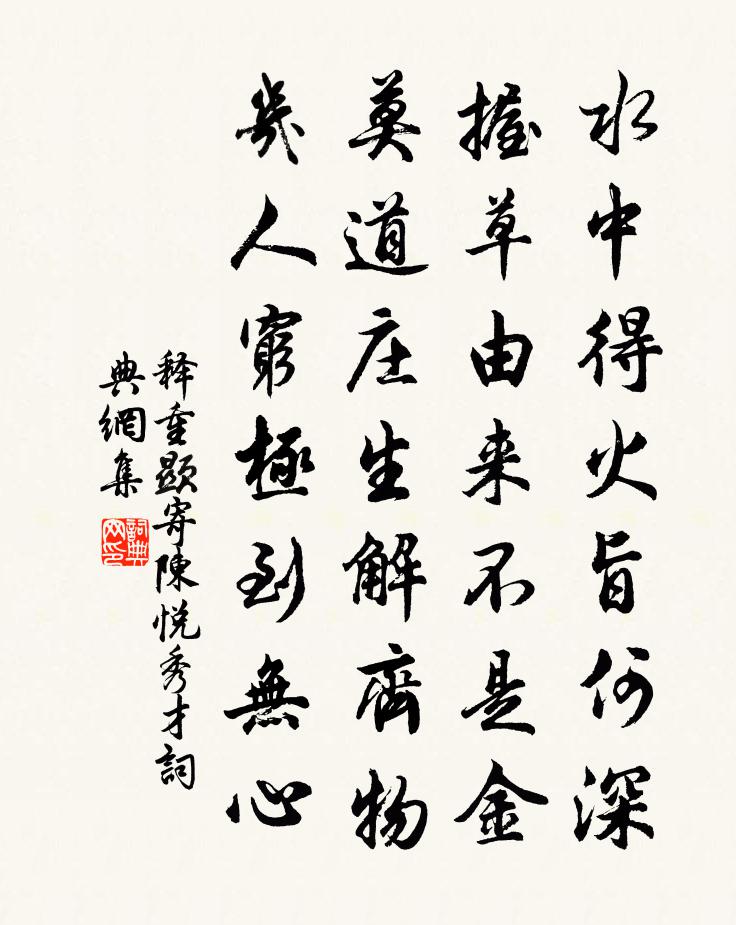 水中得火旨何深
握草由来不是金
莫道庄生解齊物
幾人窮極到無心
释重顯寄陳悦秀才詞
典網集
詞典网印